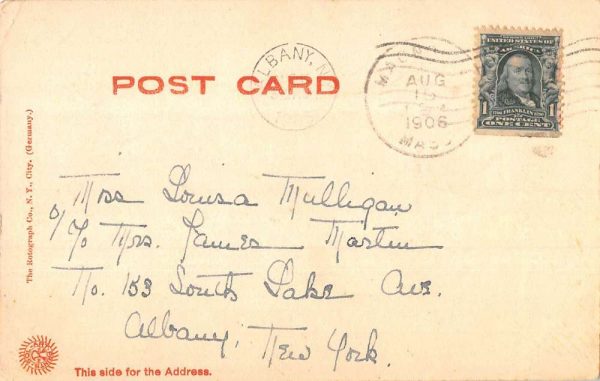 POST CARD
ALBANY, N
MALD
AUG
15
1906
MASS
UNITED STATES OF
AMERICA
1 1706 FRANKLIN 1790 1
POSTAGE
ONE CENT
Miss Louisa Mulligan
c/o Mrs. James Martin
No. 153 South Lake Ave.
Albany,
New York.
The Rotograph Co., N. Y., City. (Germany.)
This side for the Address.